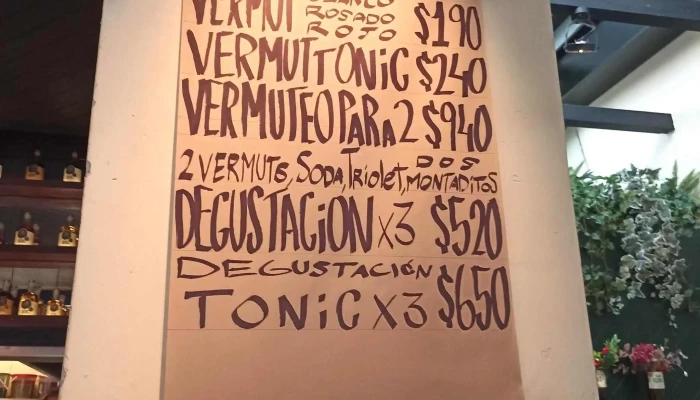 VERMUT BLANCO ROSADO ROJO $190
VERMUT TONiC $240
VERMUTEO PARA 2 $940
2 VERMUTS, SODA, TRiOLET, DOS MONTADiTOS
DEGUSTACiON x3 $520
DEGUSTACIÓN
TONiC X3 $650